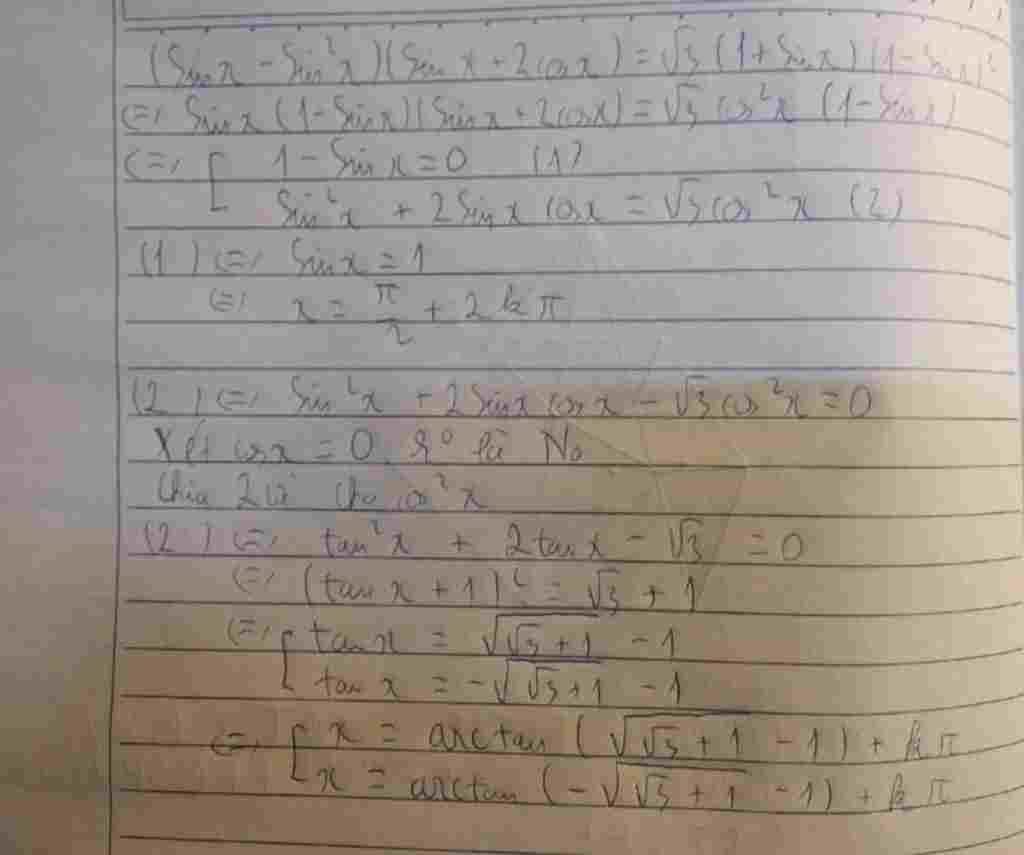 (Sin x - Sin²x)(Sin x + 2cos x) = √3 (1 + Sin x)(1 - Sin x)²
<=> Sin x (1 - Sin x)(Sin x + 2cos x) = √3 cos²x (1 - Sin x)
<=> [ 1 - Sin x = 0 (1)
Sin²x + 2Sin x cos x = √3 cos²x (2)
(1) <=> Sin x = 1
<=> x = π/2 + 2kπ
(2) <=> Sin²x + 2Sin x cos x - √3 cos²x = 0
Xét cos x = 0, là No
Chia 2 vế cho cos²x
(2) <=> tan²x + 2tan x - √3 = 0
<=> (tan x + 1)² = √3 + 1
<=> [ tan x = √(√3 + 1) - 1
tan x = -√(√3 + 1) - 1
<=> [ x = arctan (√(√3 + 1) - 1) + kπ
x = arctan (-√(√3 + 1) - 1) + kπ